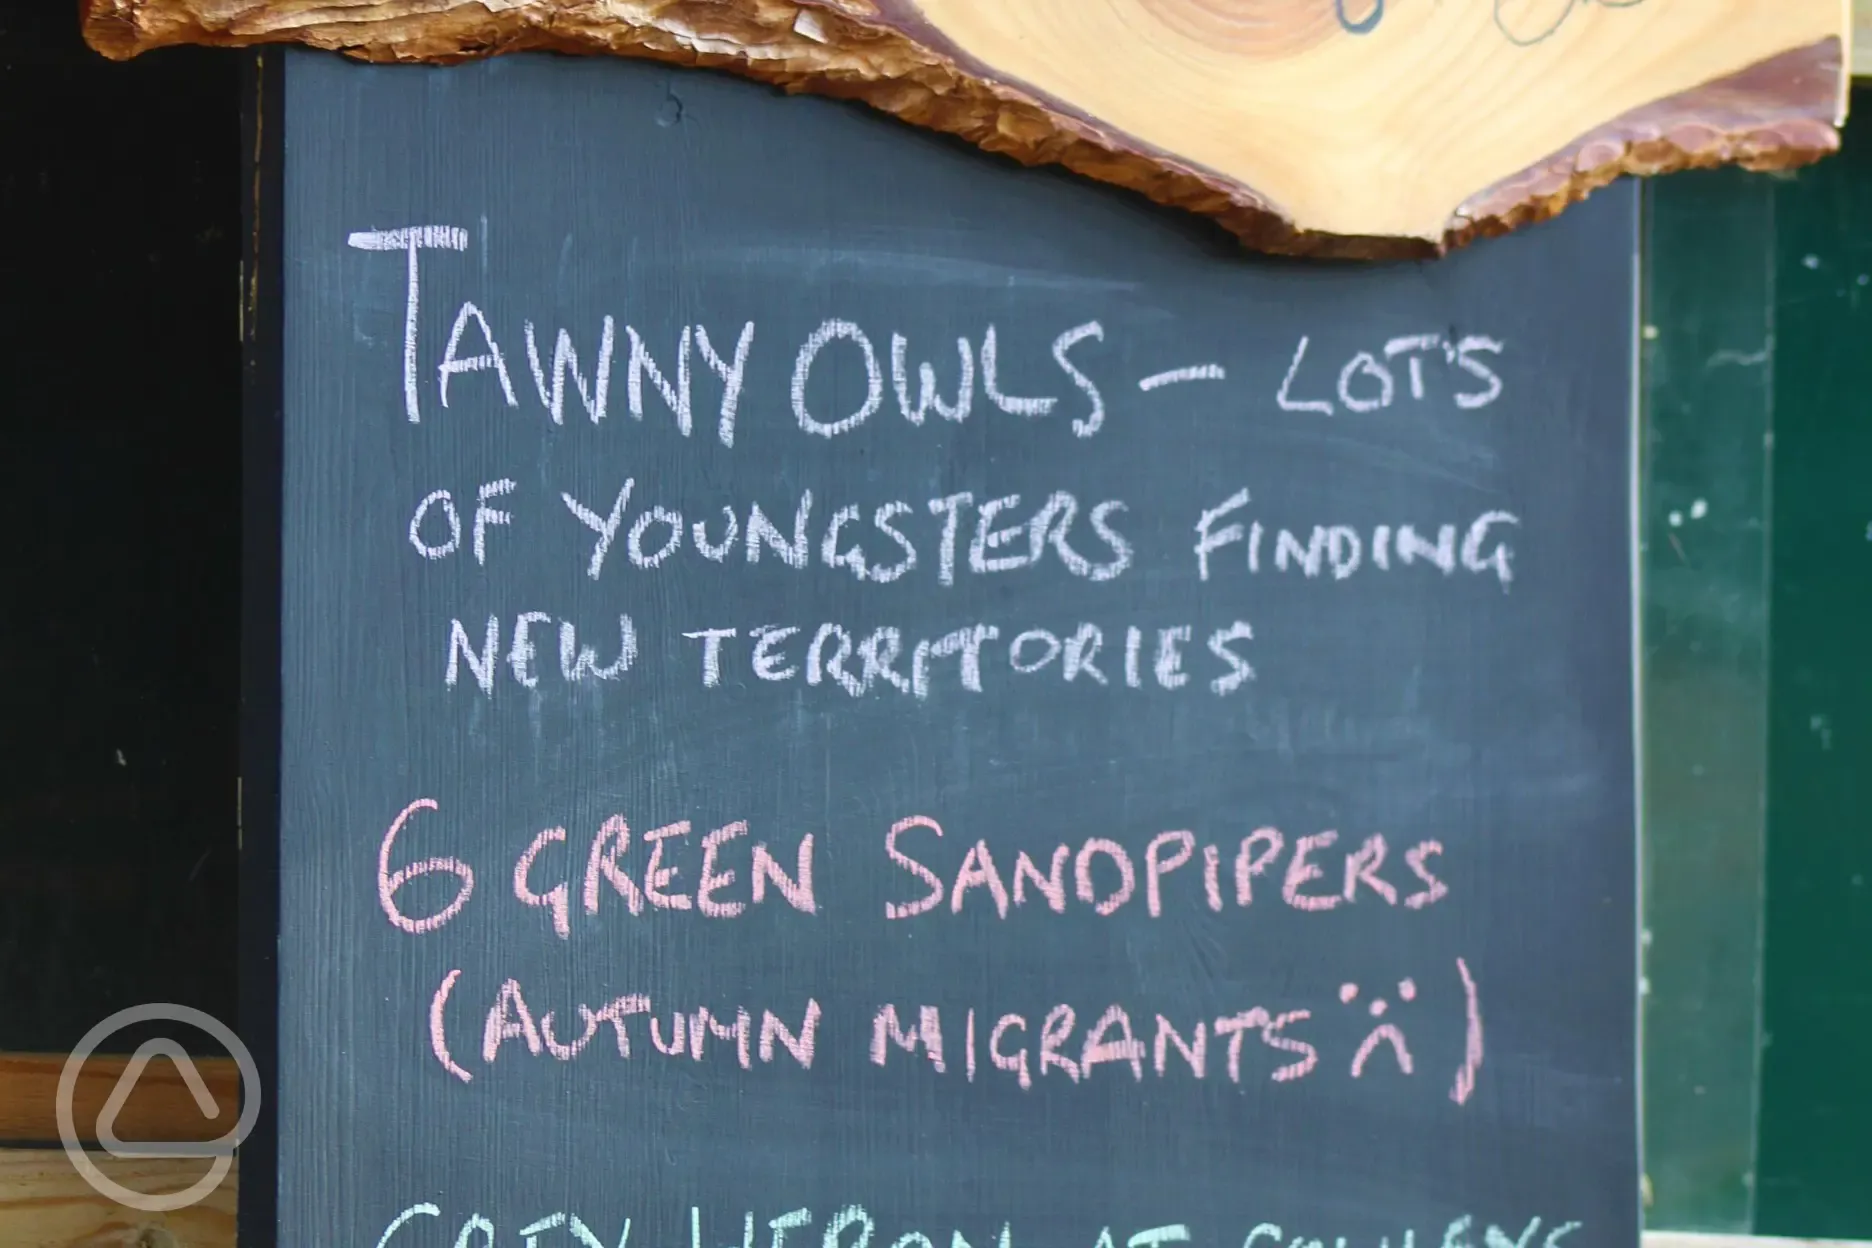 TAWNY OWLS - LOTS
OF YOUNGSTERS FINDING
NEW TERRITORIES
6 GREEN SANDPIPERS
(AUTUMN MIGRANTS ☹)
GREY HERON AT